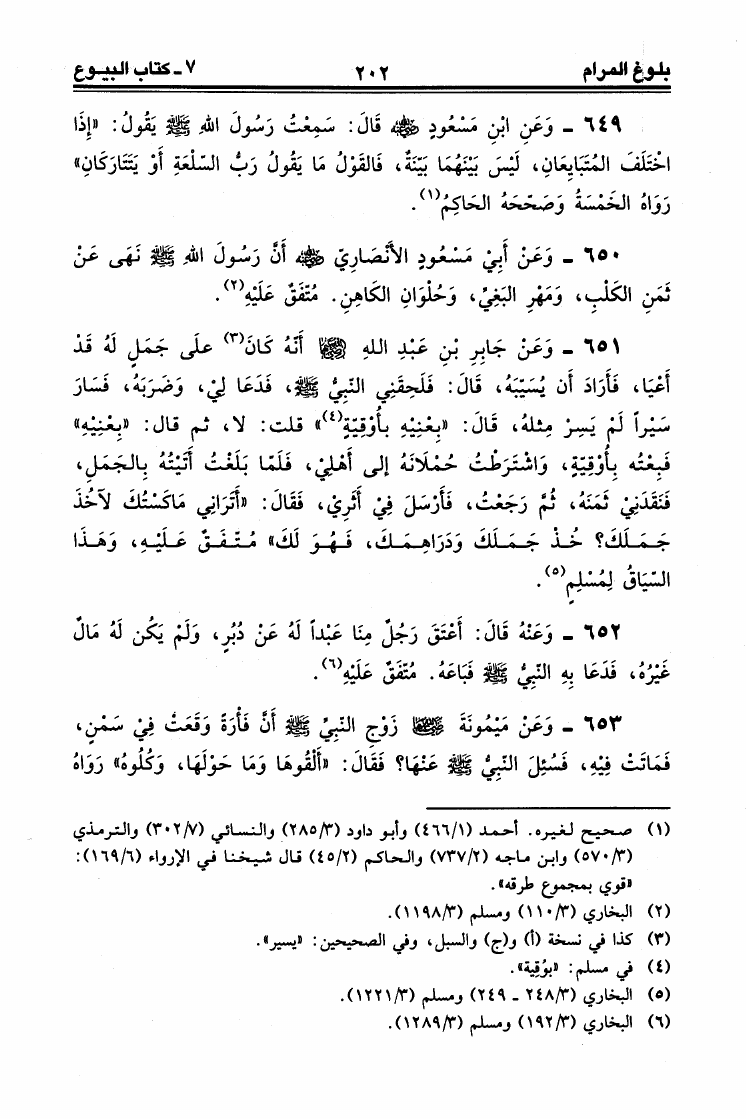 بلوغ المرام ٢٠٢ ٧ ـ كتاب البيوع
٦٤٩ ـ وَعَنِ ابْنِ مَسْعُودٍ رضي الله عنه قَالَ: سَمِعْتُ رَسُولَ اللهِ ﷺ يَقُولُ: «إِذَا
اخْتَلَفَ المُتَبَايِعَانِ، لَيْسَ بَيْنَهُمَا بَيِّنَةٌ، فَالقَوْلُ مَا يَقُولُ رَبُّ السِّلْعَةِ أَوْ يَتَتَارَكَانِ»
رَوَاهُ الخَمْسَةُ وَصَحَّحَهُ الحَاكِمُ(١).
٦٥٠ ـ وَعَنْ أَبِيْ مَسْعُودٍ الأَنْصَارِيِّ رضي الله عنه أَنَّ رَسُولَ اللهِ ﷺ نَهَى عَنْ
ثَمَنِ الكَلْبِ، وَمَهْرِ البَغِيِّ، وَحُلْوَانِ الكَاهِنِ. مُتَّفَقٌ عَلَيْهِ(٢).
٦٥١ ـ وَعَنْ جَابِرِ بْنِ عَبْدِ اللهِ رضي الله عنهما أَنَّهُ كَانَ(٣) علَى جَمَلٍ لَهُ قَدْ
أَعْيَا، فَأَرَادَ أَن يُسَيِّبَهُ، قَالَ: فَلَحِقَنِي النَّبِيُّ ﷺ، فَدَعَا لِيْ، وَضَرَبَهُ، فَسَارَ
سَيْراً لَمْ يَسِرْ مِثلهُ، قَالَ: «بِعْنِيْهِ بِأُوْقِيَّةٍ(٤)» قلت: لا، ثم قال: «بِعْنِيْهِ»
فَبِعْتُه بِأُوْقِيَّةٍ، وَاشْتَرَطْتُ حُمْلَانَهُ إلى أَهْلِيْ، فَلَمَّا بَلَغْتُ أَتَيْتُهُ بِالجَمَلِ،
فَنَقَدَنِيْ ثَمَنَهُ، ثُمَّ رَجَعْتُ، فَأَرْسَلَ فِيْ أَثَرِيْ، فَقَالَ: «أَتَرَانِي مَاكَسْتُكَ لآخُذَ
جَمَلَكَ؟ خُذْ جَمَلَكَ وَدَرَاهِمَكَ، فَهُوَ لَكَ» مُتَّفَقٌ عَلَيْهِ، وَهَذَا
السِّيَاقُ لِمُسْلِمٍ(٥).
٦٥٢ ـ وَعَنْهُ قَالَ: أَعْتَقَ رَجُلٌ مِنَا عَبْداً لَهُ عَنْ دُبُرٍ، وَلَمْ يَكُن لَهُ مَالٌ
غَيْرُهُ، فَدَعَا بِهِ النَّبِيُّ ﷺ فَبَاعَهُ. مُتَّفَقٌ عَلَيْهِ(٦).
٦٥٣ ـ وَعَنْ مَيْمُونَةَ رضي الله عنها زَوْجِ النَّبِيِّ ﷺ أَنَّ فَأْرَةً وَقَعَتْ فِيْ سَمْنٍ،
فَمَاتَتْ فِيْهِ، فَسُئِلَ النَّبِيُّ ﷺ عَنْهَا؟ فَقَالَ: «أَلْقُوهَا وَمَا حَوْلَهَا، وَكُلُوهُ» رَوَاهُ
(١) صحيح لغيره. أحمد (٤٦٦/١) وأبو داود (٢٨٥/٣) والنسائي (٣٠٢/٧) والترمذي
(٥٧٠/٣) وابن ماجه (٧٣٧/٢) والحاكم (٤٥/٢) قال شيخنا في الإرواء (١٦٩/٦):
«قوي بمجموع طرقه».
(٢) البخاري (١١٠/٣) ومسلم (١١٩٨/٣).
(٣) كذا في نسخة (أ) و(ج) والسبل، وفي الصحيحين: «يسير».
(٤) في مسلم: «بوُقية».
(٥) البخاري (٢٤٨/٣ ـ ٢٤٩) ومسلم (١٢٢١/٣).
(٦) البخاري (١٩٢/٣) ومسلم (١٢٨٩/٣).